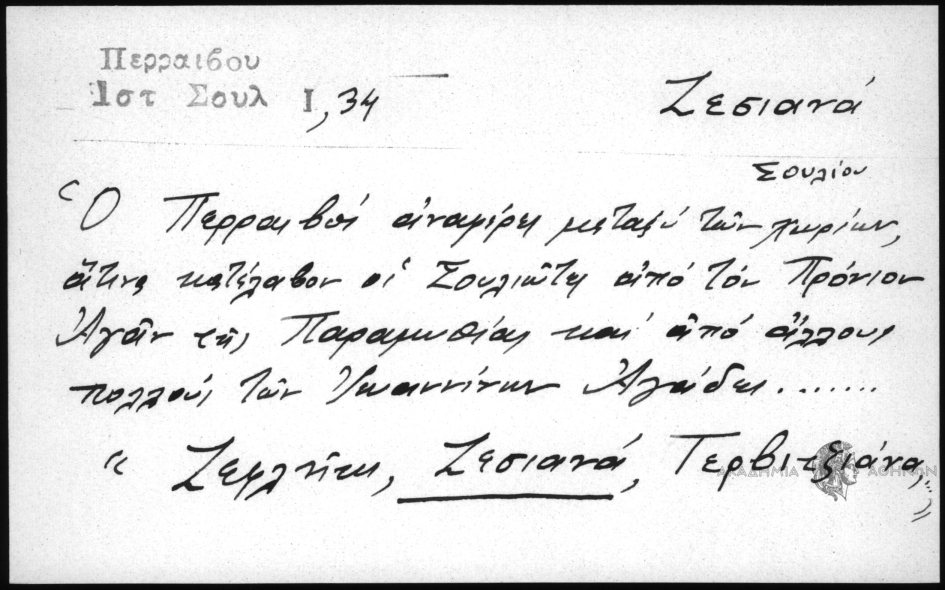 Περραιβου
Ιστ Σουλ Ι, 34
Ζεσιανά
Σουλίου
Ὁ Περραιβός ἀναφέρει μεταξύ τῶν χωρίων,
ἅτινα κατέλαβον οἱ Σουλιῶται ἀπό τόν Πρόνιον
Ἀγᾶν τῆς Παραμυθίας καί ἀπό ἄλλους
πολλούς τῶν Ἰωαννίνων Ἀγάδες.......
" Ζεσιανά, Γερβιτζιάνα, "
ΑΚΑΔΗΜΙΑ ΑΘΗΝΩΝ